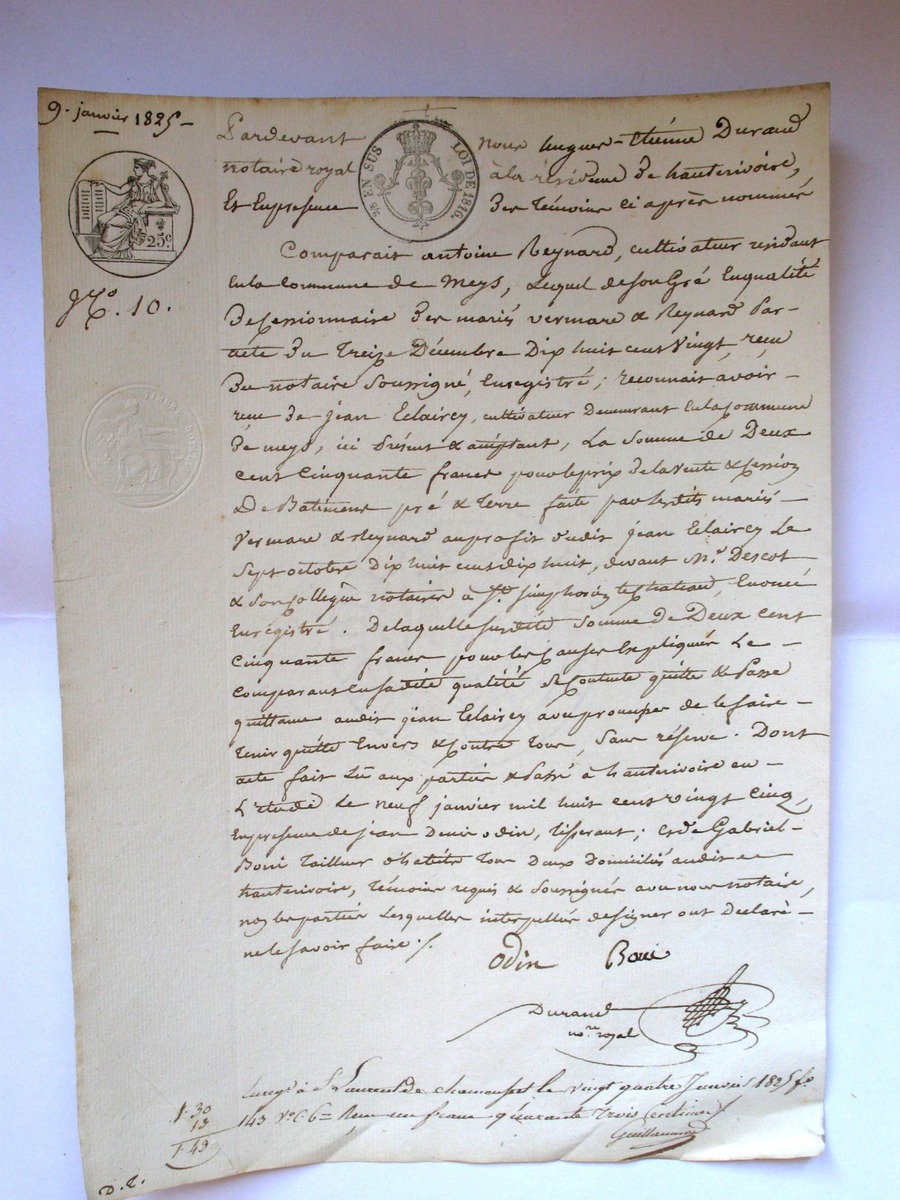 9. janvier 1825
Pardevant nous hugues-étiénne Durand
notaire royal à la résidence De hauterivoire,
Et Enpresence Des témoins ci après nommés
EN SUS LOI DE 1816.
25c
No. 10.
Comparait antoine Reynard, cultivateur residant
En la Commune de Meys, Lequel de son Gré Enqualité
De Cessionnaire Des mariés vermare & Reynard Par
acte Du treize Décembre Dix huit cent vingt, reçu
Du notaire Soussigné, Enregistré; reconnait avoir
reçu de jean Eclaircy, cultivateur demeurant En la Commune
De meys, ici présent & acceptant, La Somme de Deux
cent Cinquante francs pour le prix de la vente & Cession
De Batiment pré & terre faite par lesdits mariés
vermare & Reynard au profit dudit jean Eclaircy Le
Sept octobre Dix huit cent dix huit, devant Mr. Descot
& Son Collègue notaires à St. Simphorien le Chateau, Enoncé
Enrégistré. De laquelle Susdité Somme de Deux cent
Cinquante francs pour les Causes Expliquées Le
Comparant En sadité qualité Se Contente quitte & Passe
quittance audit jean Eclaircy avec promesse de le faire
tenir quitte Envers & Contre tous, Sans réserve. Dont
acte fait Lû aux partiés & Passé à hauterivoire en
L'étude Le neuf janvier mil huit cent vingt Cinq,
En presence de jean Denis odin, tisserant; et de Gabriel
Boni tailleur d'habits tous deux domiciliés audit
hauterivoire, témoins requis & Soussignés avec nous notaire,
non les partiés Lesquelles interpellées de signer ont Déclaré
ne le Savoir faire ./.
odin Boni
Durand
nore royal
Enregé à St Laurent de chamousset le vingt quatre Janvier 1825 fo.
143 Vo. C. 6 = Reçu un franc quarante trois centimes
Guillaumin
1.30
13
1.43
D. L.